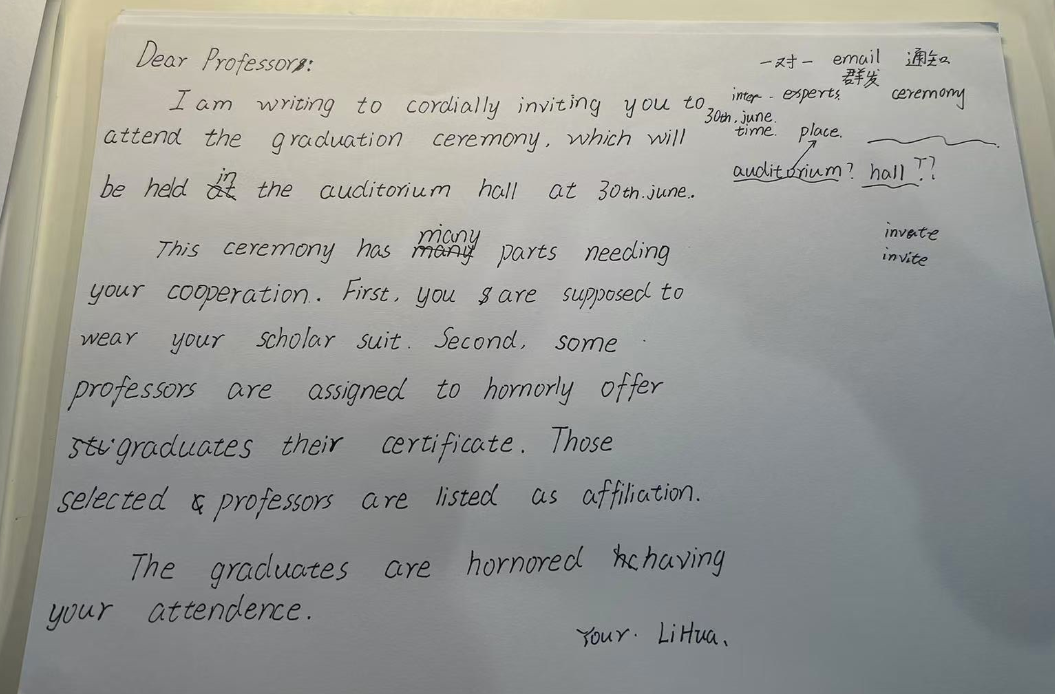 Dear Professors:
I am writing to cordially inviting you to
attend the graduation ceremony, which will
be held in the auditorium hall at 30th.june.
This ceremony has many parts needing
your cooperation. First, you are supposed to
wear your scholar suit. Second, some
professors are assigned to hornorly offer
graduates their certificate. Those
selected professors are listed as affiliation.
The graduates are hornored having
your attendence.
Your. LiHua.
一对一 email 通知
群发
inter - esperts ceremony
30th.june.
time. place.
auditorium? hall??
invate
invite